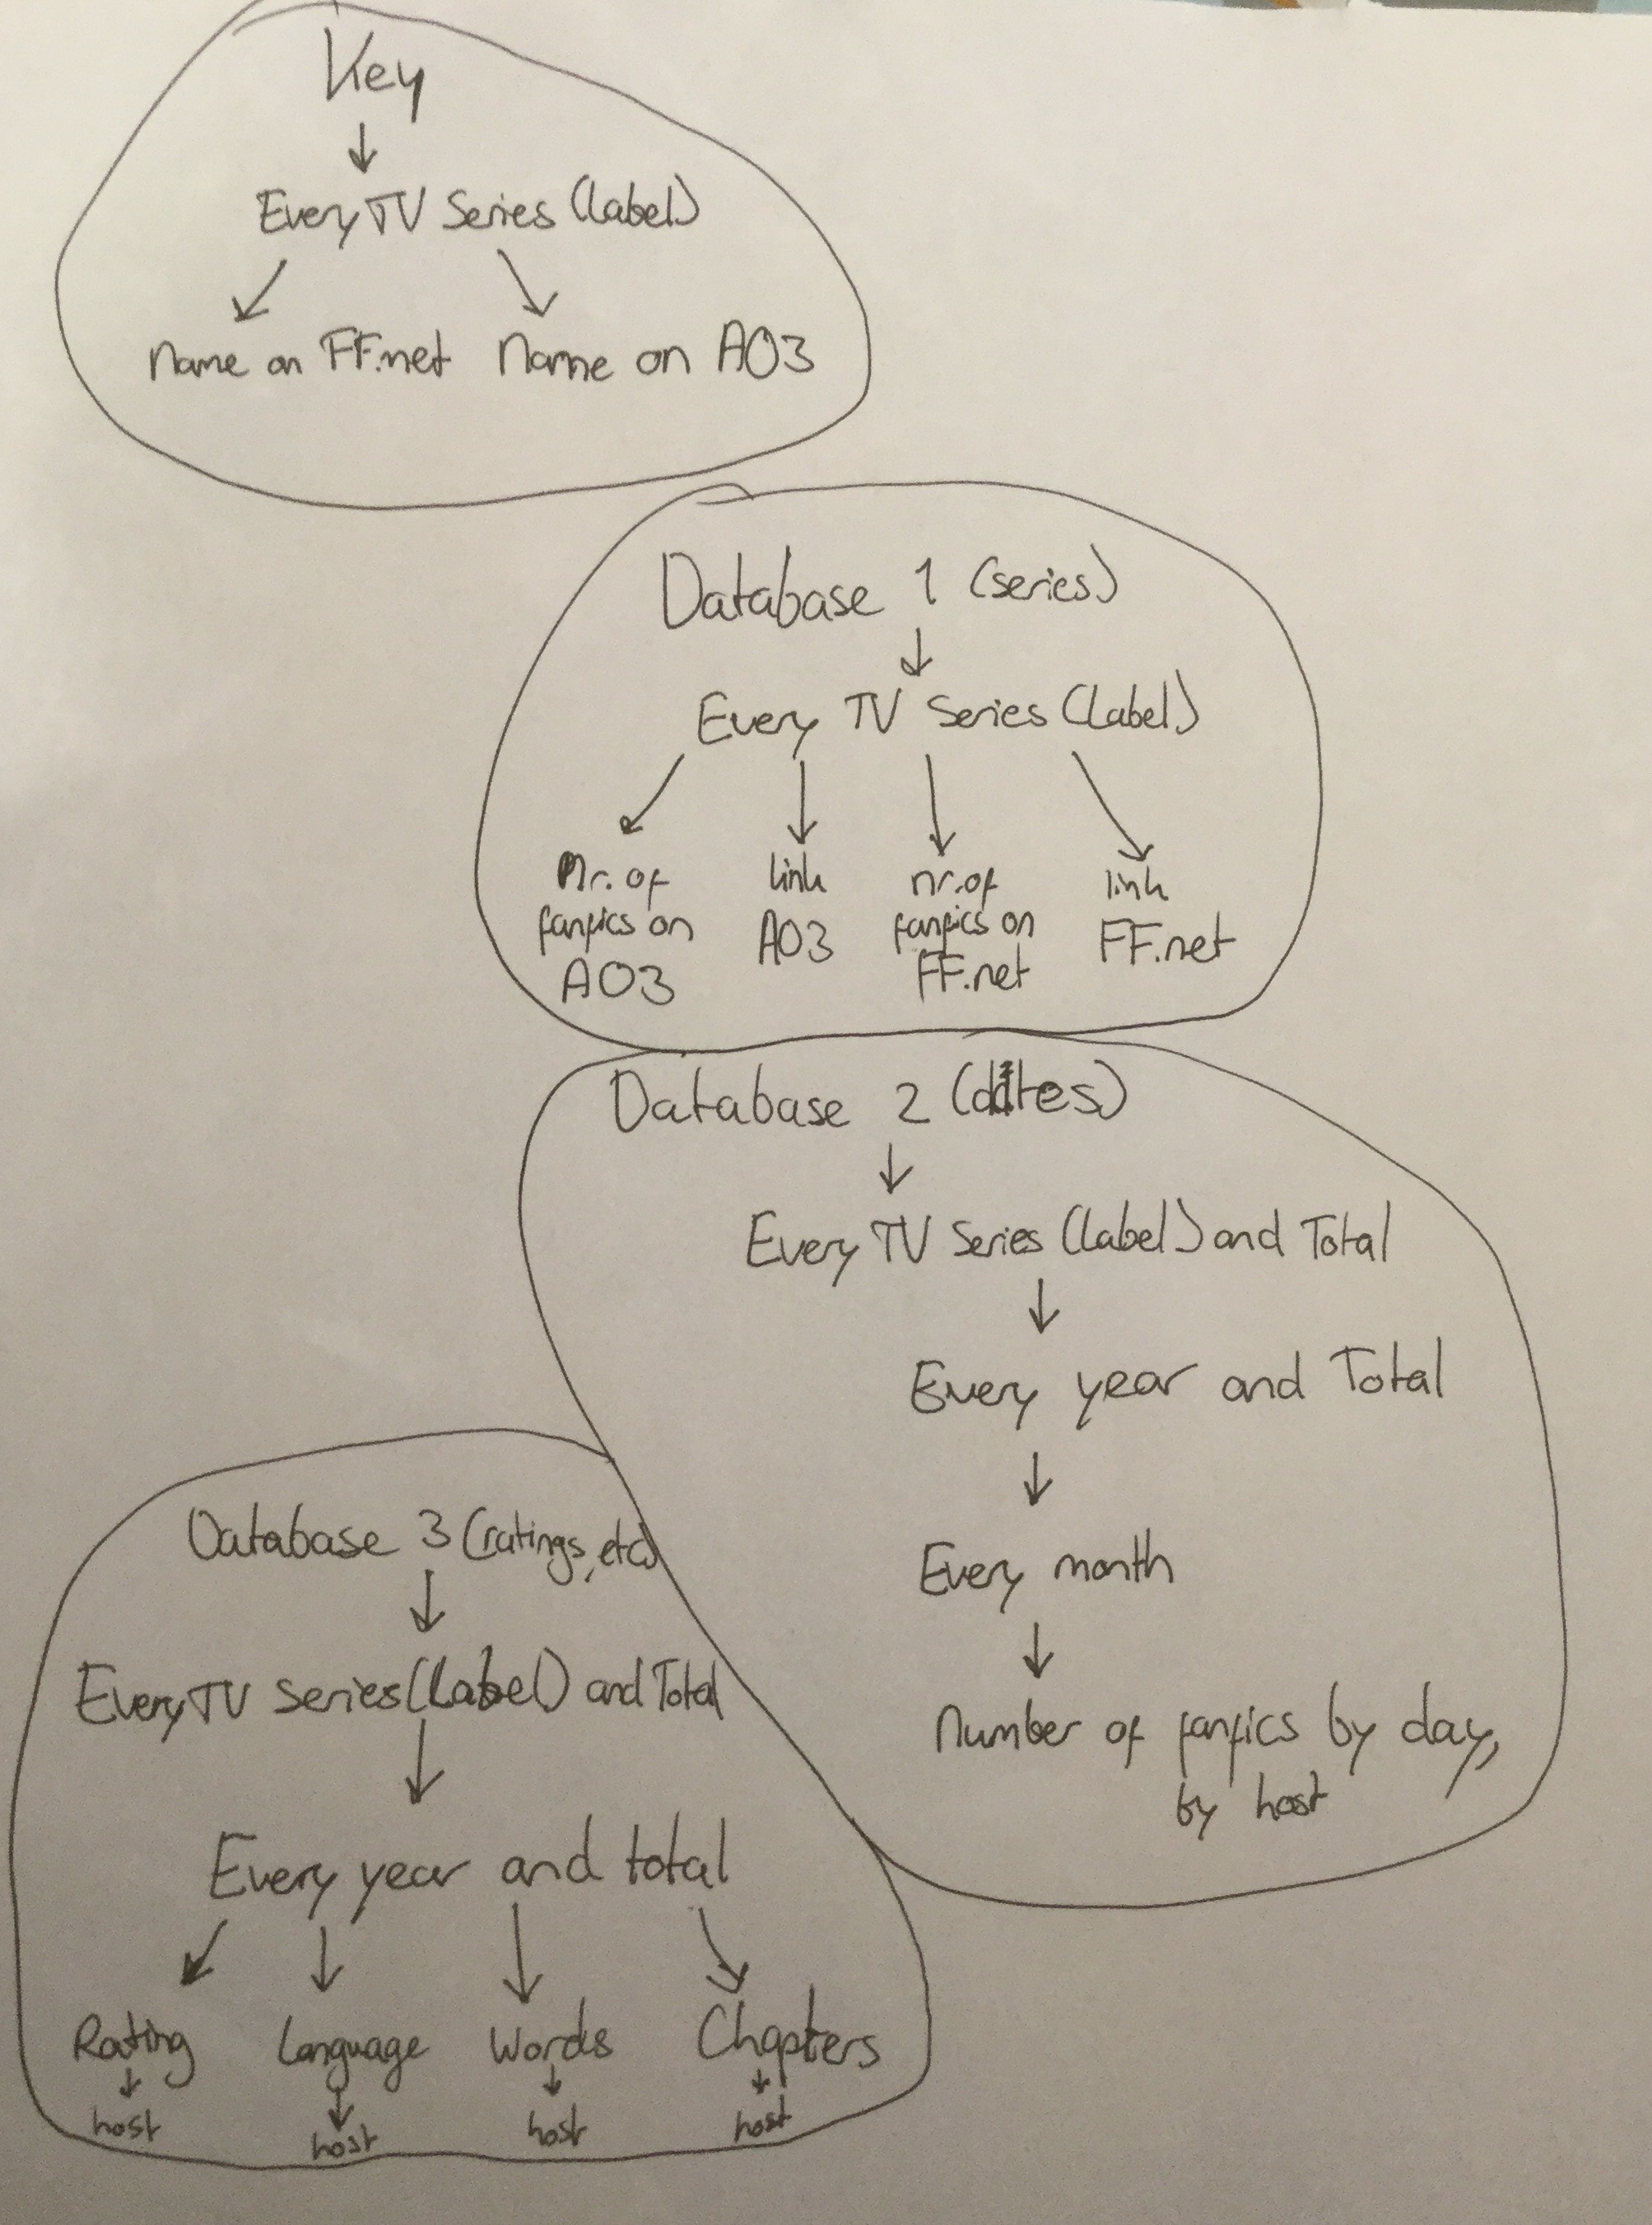 Key
Every TV Series (label)
Name on FF.net Name on AO3
Database 1 (series)
Every TV Series (Label)
Nr. of
fanfics on
AO3
link
AO3
nr. of
fanfics on
FF.net
link
FF.net
Database 2 (dates)
Every TV Series (label) and Total
Every year and Total
Every month
Number of fanfics by day,
by host
Database 3 (ratings, etc)
Every TV series (Label) and Total
Every year and total
Rating Language Words Chapters
host host host host